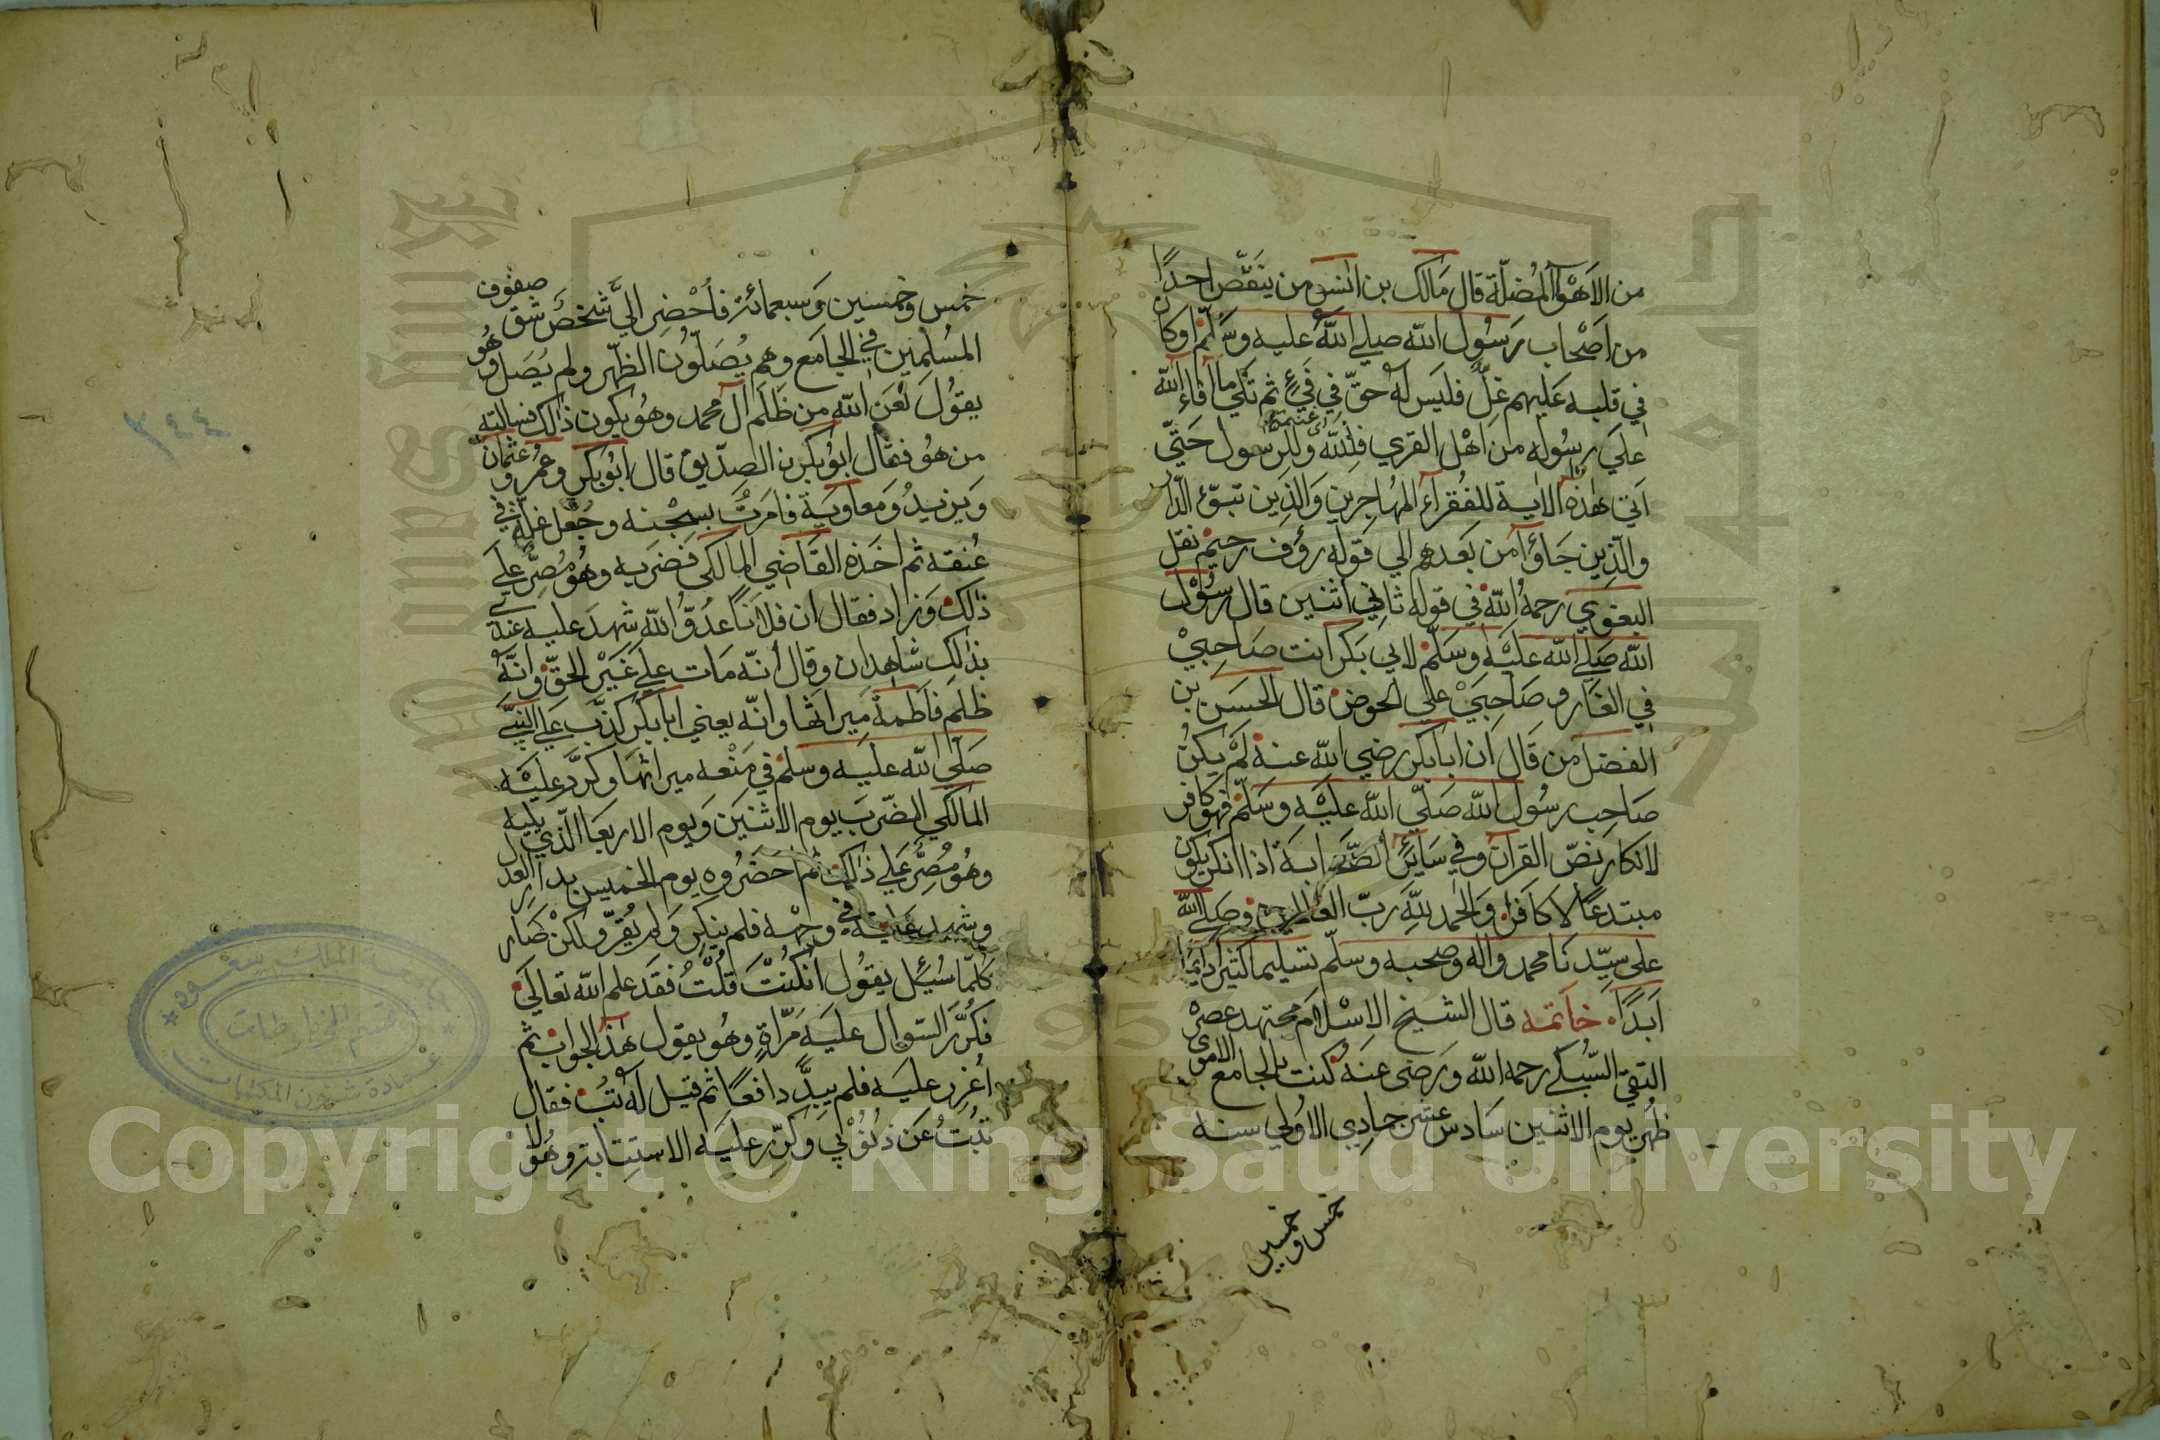 من الاهوآ المضلة قال مالك بن انس من ينقص احدا
من اصحاب رسول الله صلي الله عليه وسلم او كان
في قلبه عليهم غل فليس له حق في فيء ثم تلي ما آفاء الله
علي رسوله من اهل القري فلله وللرسول حتي
اتي هذه الاية للفقرآء المهاجرين والذين تبوء الدار
والذين جاؤا من بعدهم الي قوله رؤف رحيم نقل
البغوي رحمه الله في قوله ثاني اثنين قال رسول
الله صلي الله عليه وسلم لابي بكر انت صاحبي
في الغار وصاحبي علي الحوض قال الحسن بن
الفضل من قال ان ابا بكر رضي الله عنه لم يكن
صاحب رسول الله صلي الله عليه وسلم فهو كافر
لانكار نص القرآن وفي سائر الصحابة اذا انكر يكون
مبتدعا لا كافرا والحمد لله رب العالمين وصلي الله
علي سيدنا محمد واله وصحبه وسلم تسليما كثيرا دايما
ابدا خاتمه قال الشيخ الاسلام مجتهد عصره
التقي السبكي رحمه الله ورضي عنه كنت بالجامع الاموي
ظهر يوم الاثنين سادس عشر جمادي الاولي سنه
خمس وخمسين
خمس وخمسين وسبعمائة فاحضر الي شخص شق صفوف
المسلمين في الجامع وهم يصلون الظهر ولم يصل وهو
يقول لعن الله من ظلم آل محمد وهو يكون ذالك فسالته
من هو فقال ابو بكر بن الصديق قال ابو بكر وعمر وعثمان
ويزيد ومعاوية فامرت بسجنه وجعل غلة في
عنقه ثم اخذه القاضي المالكي فضربه وهو مصر علي
ذلك وزاد فقال ان فلانا عدو الله شهد عليه عندي
بذلك شاهدان وقال انه مات علي غير الحق وانه
ظلم فاطمة ميراثها وانه يعني ابا بكر كذب علي النبي
صلي الله عليه وسلم في منعه ميراثها وكرر عليه
المالكي الضرب يوم الاثنين ويوم الاربعا الذي يليه
وهو مصر علي ذالك ثم احضروه يوم الخميس بدار العدل
وشهد عليه في وجهه فلم ينكر ولم يقر ولكن صار
كلما سيئل يقول ان كنت قلت فقد علم الله تعالي
فكرر السوال عليه مرة وهو يقول هذا الجواب ثم
اعزر عليه فلم يبد دافعا ثم قيل له تب فقال
تبت عن ذنوبي وكرر عليه الاستتابة وهو لا
جامعة الملك سعود
قسم المخطوطات
عمادة شئون المكتبات
Copyright © King Saud University